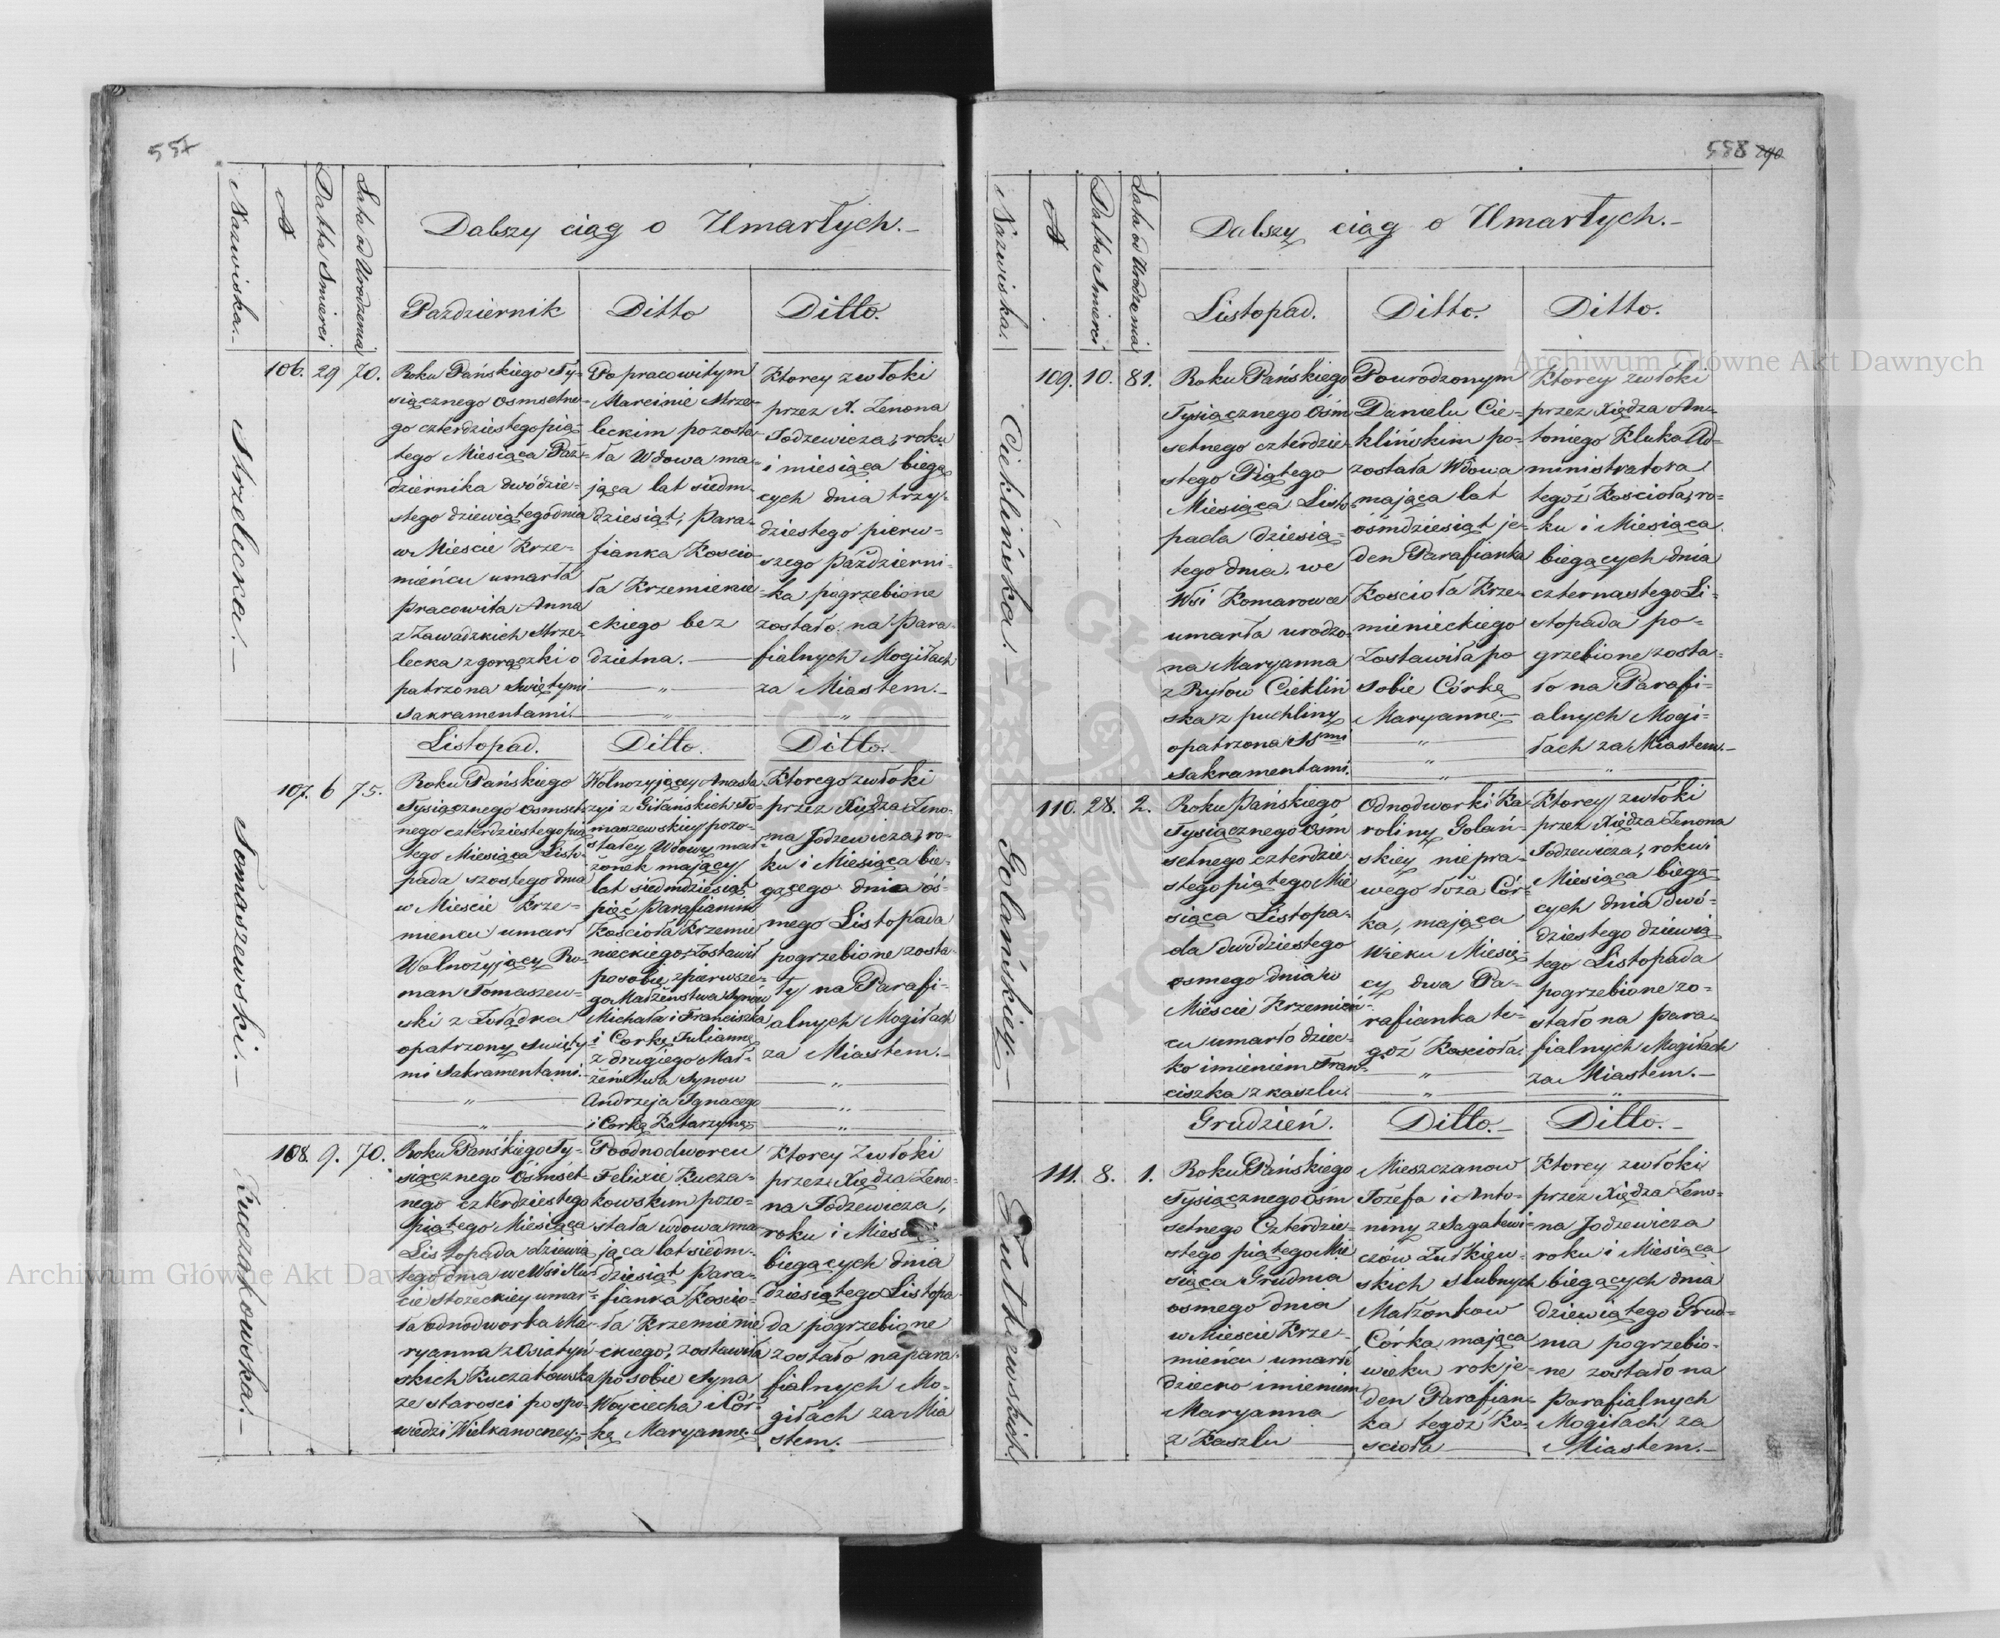 557
Nazwiska.
N
Datta Smierci
Lata od Urodzenia
Dalszy ciąg o Umarłych.
Pazdziernik
Ditto
Ditto.
Strzelecka.
106. 29 70.
Roku Pańskiego Ty-
siącznego osmsetne-
go czterdziestego pią-
tego Miesiąca Paź-
dziernika dwódzie-
stego dziewiątego dnia
w Mieście Krze-
mieńcu umarła
pracowita Anna
z Zawadzkich Strze-
lecka z gorączki o
patrzona Swiętymi
Sakramentami.
Po pracowitym
Marcinie Strze-
leckim pozosta-
ła Wdowa ma-
jąca lat siedm-
dziesiąt, Para-
fianka Koscio-
ła Krzemienie
ckiego bez
dzietna.
Ktorey zwłoki
przez X. Zenona
Jodzewicza, roku
i miesiąca biegą
cych dnia trzy-
dziestego pierw-
szego Październi-
ka pogrzebione
zostało na Para-
fialnych Mogiłach
za Miastem.
Listopad.
Ditto.
Ditto.
Tomaszewski.
107. 6 75.
Roku Pańskiego
Tysiącznego osmset-
nego czterdziestego pią
tego Miesiąca Listo-
pada szostego dnia
w Mieście Krze-
mieńcu umarł
Wolnożyjący Ro-
man Tomaszew-
ski z Żołądka
opatrzony Swięty-
mi Sakramentami.
Wolnozyjącey Anasta
zyi z Gitańskich To-
maszewskiey pozo-
stałey Wdowy mał-
żonek mający
lat siedmdziesiąt
pięć Parafianin
Kościoła Krzemie
nieckiego, Zostawił
po sobie z pierwsze-
go Małżeństwa Synów
Michała i Franciszka
i Corkę Juliannę
z drugiego Mał-
żeństwa Synow
Andrzeja Ignacego
i Corkę Katarzynę
Ktorego zwłoki
przez Xiędza Zeno-
na Jodzewicza, ro-
ku i Miesiąca bie-
gącego dnia ós-
mego Listopada
pogrzebione zosta-
ły na Parafi-
alnych Mogiłach
za Miastem.
Kuczakowska.
108. 9. 70.
Roku Pańskiego Ty-
siącznego Ośmset-
nego czterdziestego
piątego Miesiąca
Listopada dziewią
tego dnia we Wsi Hu-
cie Stożeckiey umar-
ła odnodworka Ma-
ryanna z Osiatyń
skich Kuczakowska
ze starości po spo-
wiedzi Wielkanocney.
Po odnodworcu
Felixie Kucza-
kowskim pozo-
stała wdowa ma-
jąca lat siedm-
dziesiąt Para-
fianka Koscio-
ła Krzemienie
ckiego, zostawiła
po sobie Syna
Woyciecha i Cór-
kę Maryannę.
Ktorey Zwłoki
przez Xiędza Zeno-
na Jodzewicza,
roku i Miesiąca
biegących dnia
dziesiątego Listopa
da pogrzebione
zostało na para-
fialnych Mo-
giłach za Mia
stem.
558 290
Nazwiska.
N
Datta Smierci
Lata od Urodzenia
Dalszy ciąg o Umarłych.
Listopad.
Ditto.
Ditto.
Cieklińska.
109. 10. 81.
Roku Pańskiego
Tysiącznego Ośm
setnego czterdzie-
stego Piątego
Miesiąca Listo-
pada dziesią-
tego dnia we
Wsi Komarowce
umarła urodzo-
na Maryanna
z Ryłow Cieklin
ska z puchliny
opatrzona SSmi
Sakramentami.
Po urodzonym
Danielu Cie-
klińskim po-
została Wdowa
mająca lat
ośmdziesiąt je-
den Parafianka
Kościoła Krze-
mienieckiego
Zostawiła po
sobie Córkę
Maryannę.
Ktorey zwłoki
przez Xiędza An-
toniego Kluka Ad-
ministratora
tegoż Kościoła, ro-
ku i Miesiąca
biegących dnia
czternastego Li-
stopada po-
grzebione zosta-
ło na Parafi-
alnych Mogi-
łach za Miastem.
Golańskiej.
110. 28. 2.
Roku Pańskiego
Tysiącznego Ośm
setnego czterdzie-
stego piątego Mie
siąca Listopa-
da dwódziestego
osmego dnia w
Mieście Krzemień-
cu umarło dziec-
ko imieniem Fran-
ciszka z kaszlu.
Odnodworki Ka-
roliny Golań-
skiey niepra-
wego łoża Cór-
ka, mająca
Wieku Miesię-
cy dwa Pa-
rafianka te-
goż Kościoła.
Ktorey zwłoki
przez Xiędza Zenona
Jodzewicza, roku i
Miesiąca biegą-
cych dnia dwó-
dziestego dziewią
tego Listopada
pogrzebione zo-
stało na Para-
fialnych Mogiłach
za Miastem.
Grudzień.
Ditto.
Ditto.
Żutkiewskich.
111. 8. 1.
Roku Pańskiego
Tysiącznego Ośm
setnego Czterdzie-
stego piątego Mie
siąca Grudnia
osmego dnia
w Mieście Krze-
mieńcu umarło
dziecko imieniem
Maryanna
z Kaszlu
Mieszczanow
Józefa i Anto-
niny z Sagatewi-
czów Żutkiew-
skich slubnych
Małżonkow
Córka, mająca
wieku rok je-
den Parafian-
ka tegoż Ko-
scioła
Ktorey zwłoki
przez Xiędza Zeno-
na Jodzewicza
roku i Miesiąca
biegących dnia
dziewiątego Grud-
nia pogrzebio-
ne zostało na
Parafialnych
Mogiłach za
Miastem.
Archiwum Główne Akt Dawnych
Archiwum Główne Akt Dawnych